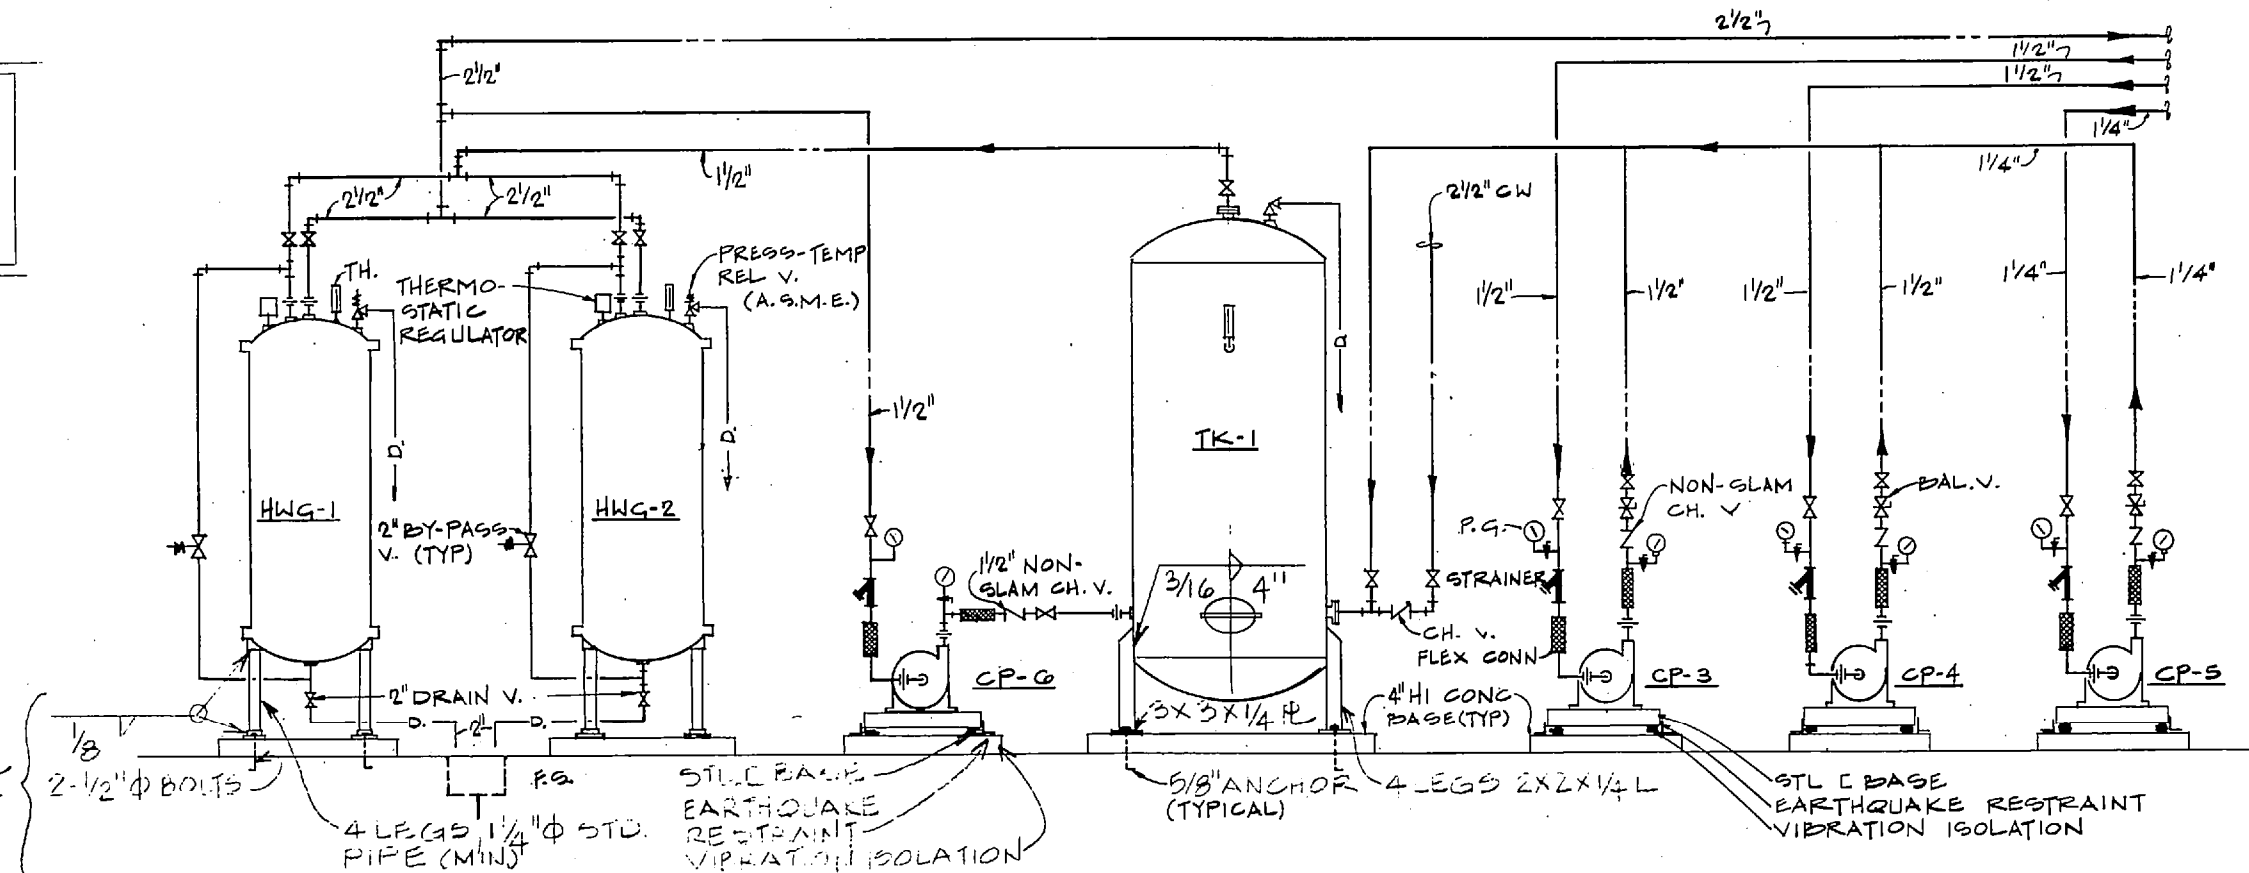 2 1/2"
1 1/2"
1 1/2"
1 1/4"
2 1/2"
1 1/2"
1 1/4"
2 1/2"
2 1/2"
2 1/2" CW
TH.
THERMO-
STATIC
REGULATOR
PRESS-TEMP
REL V.
(A.S.M.E.)
1 1/2"
1 1/2"
1 1/2"
1 1/2"
1 1/4"
1 1/4"
D.
D.
D.
1 1/2"
TK-1
HWG-1
HWG-2
2" BY-PASS
V. (TYP)
P.G.
NON-SLAM
CH. V
BAL. V.
1 1/2" NON-
SLAM CH. V.
3/16
4"
STRAINER
CH. V.
FLEX CONN
CP-6
CP-3
CP-4
CP-5
2" DRAIN V.
D.
2"
D.
3 X 3 X 1/4 PL
4" HI CONC
BASE (TYP)
1/8
2-1/2" Φ BOLTS
F.S.
4 LEGS 1 1/4" Φ STD.
PIPE (MIN)
STL [ BASE
EARTHQUAKE
RESTRAINT
VIBRATION ISOLATION
5/8" ANCHOR
(TYPICAL)
4 LEGS 2X2X1/4 L
STL [ BASE
EARTHQUAKE RESTRAINT
VIBRATION ISOLATION